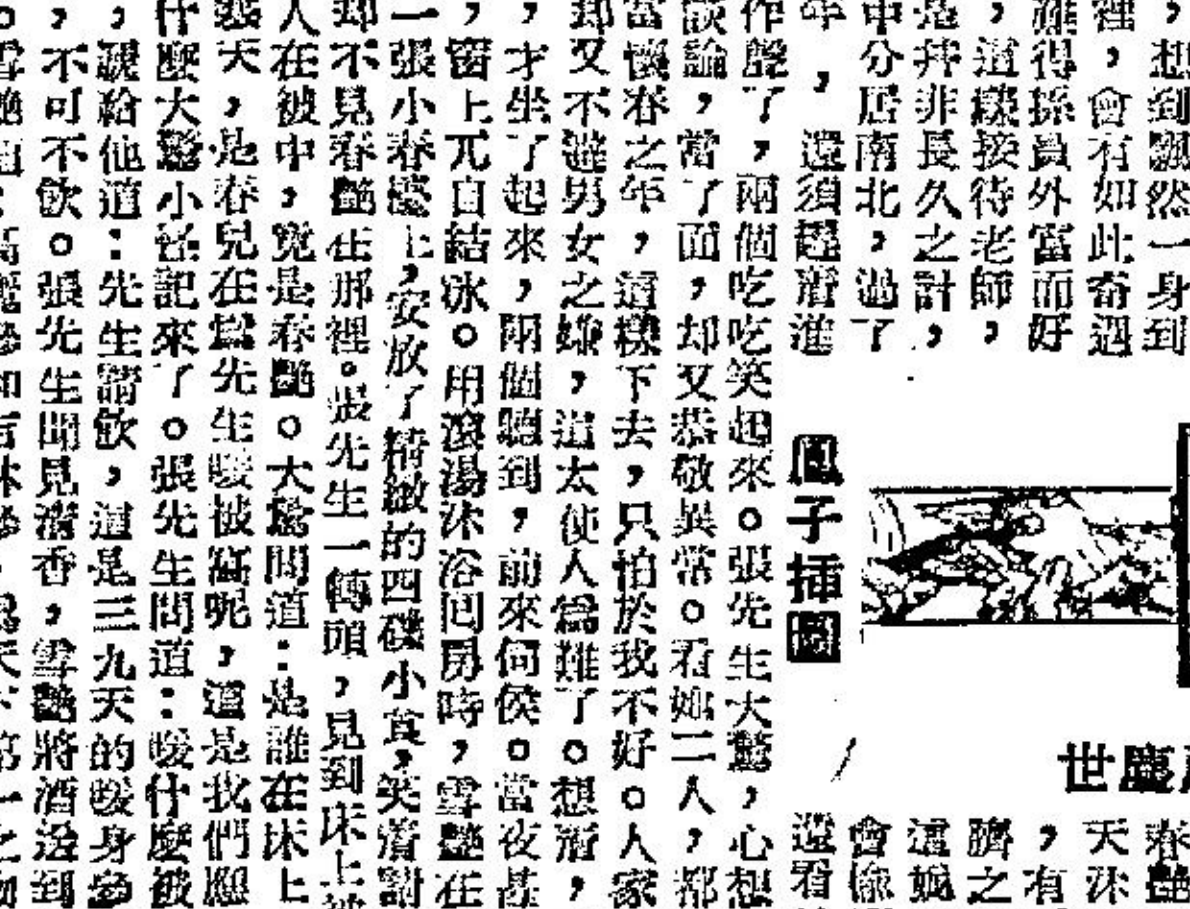 ，想到飄然一身到
裡，會有如此奇遇
難得孫員外富而好
，這樣接待老師，
是并非長久之計，
中分居南北，過了
年，還須趕着進
世塵
鳳子插圖
春艷
天沐
，有
臍之
這
會像
還看
作聲了，兩個吃吃笑起來。張先生大驚，心想
談論，當了面，却又恭敬異常。看她二人，都
當懷春之年，這樣下去，只怕於我不好。人家
却又不避男女之嫌，這太使人為難了。想着，
，才坐了起來，兩個聽到，前來伺侯。當夜甚
，窗上兀自結冰。用滾湯沐浴回房時，雪艷在
一張小春櫈上，安放了精緻的四碟小菜，笑着對
却不見春艷在那裡。張先生一轉頭，見到床上被
人在被中，竟是春艷。大驚問道：是誰在床上
天，是春兒在為先生暖被窩呢，這是我們應
什麼大驚小怪記來了。張先生問道：暖什麼被
，親給他道：先生請飲，這是三九天的暖身
，不可不飲。張先生聞見清香，雪艷將酒送到